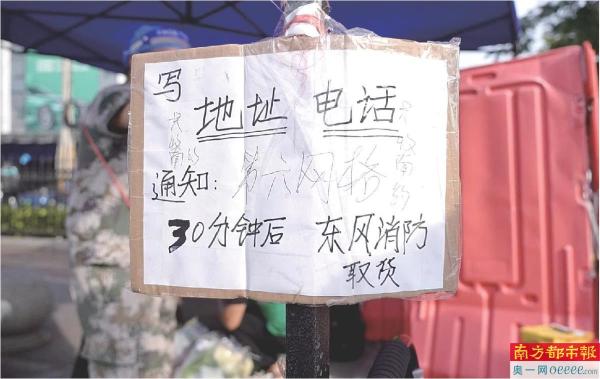 写
地址 电话
通知：第六网格
30分钟后 东风消防
取货
南方都市報
奥一网oeeee.com